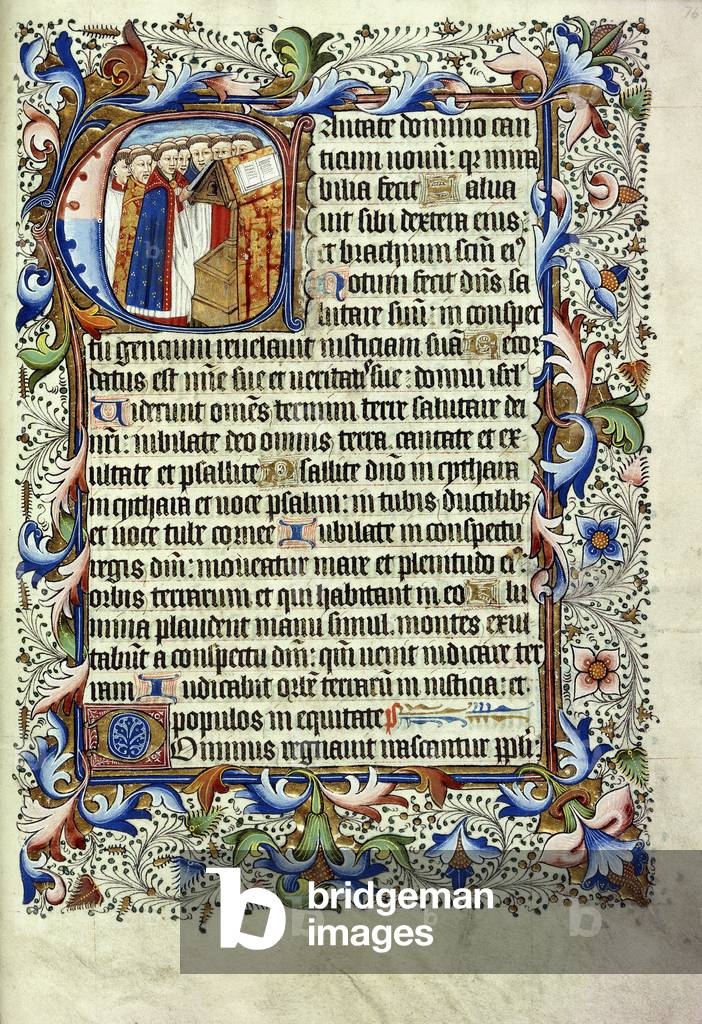 76
Cantate domino can
ticum novum: qr mira
bilia fecit Salua
uit sibi dextera eius:
et brachium scm ei9
Notum fecit dns sa
lutare suu: in conspec
tu gentium reuelauit iusticiam suā Recor
datus est mie sue et ueritatis sue: domui isrl
Viderunt omēs termini terre salutare dei
nri: iubilate deo omnis terra, cantate et ex-
ultate et psallite Psallite dno in cythara
in cythara et uoce psalmi: in tubis ductilibz
et uoce tube cornee Iubilate in conspectu
regis dni: moueatur mare et plenitudo ei9
orbis terrarum et qui habitant in eo Flu
mina plaudent manu simul, montes exul
tabūt a conspectu dni: qm uenit iudicare ter
ram Iudicabit orbē terrarū in iusticia: et
populos in equitate
Dominus regnauit irascantur ppli:
b bridgeman
images